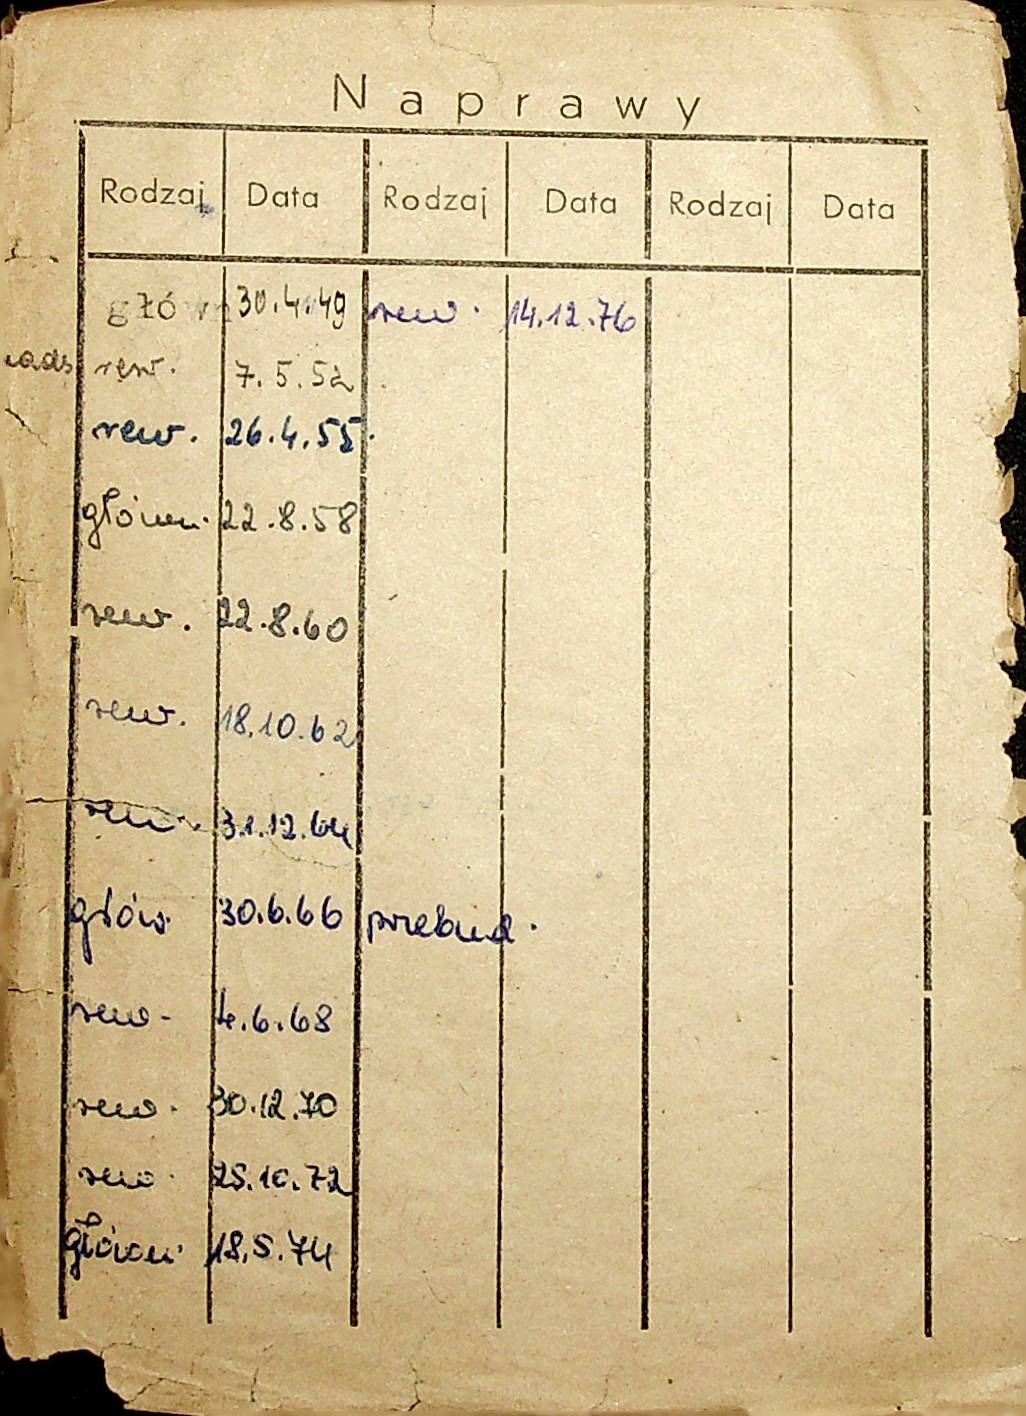 Naprawy
Rodzaj Data Rodzaj Data Rodzaj Data
główn 30.4.49 rew. 14.12.76
rew. 7.5.52
rew. 26.4.55.
główn. 22.8.58
rew. 22.8.60
rew. 18.10.62
rew. 31.12.64
głów. 30.6.66 przebud.
rew. 4.6.68
rew. 30.12.70
rew. 25.10.72
główn. 18.5.74